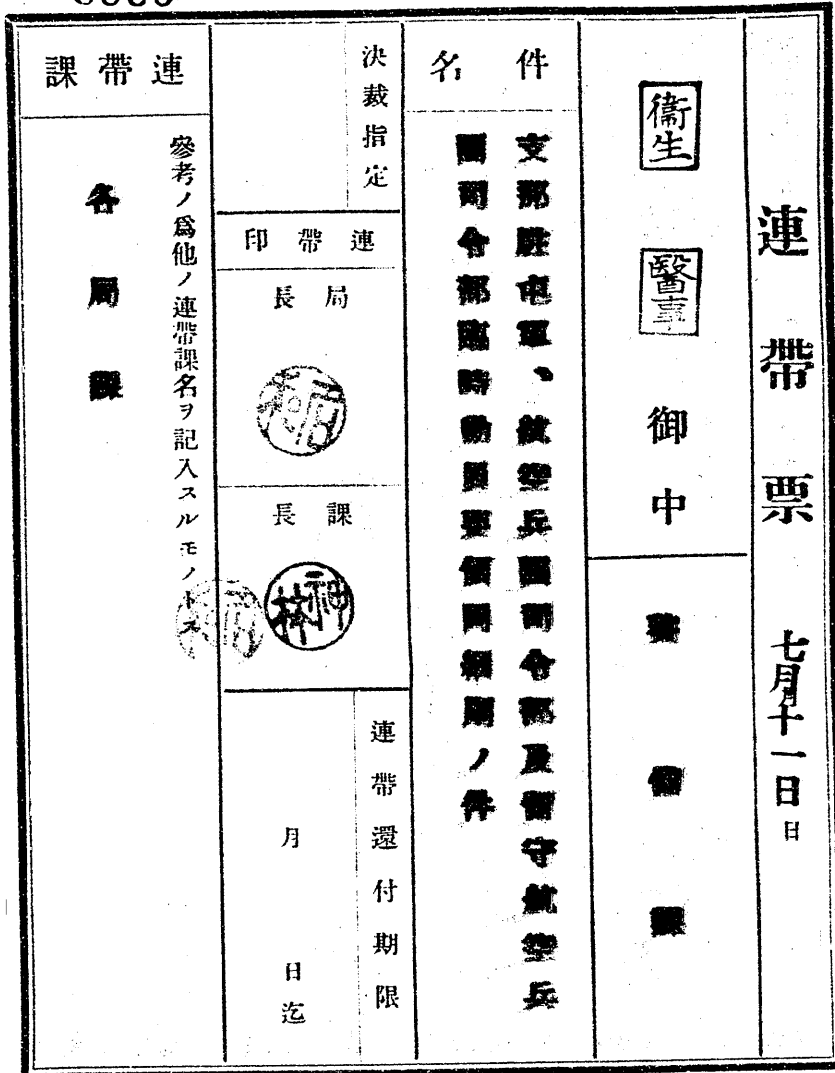 連帶票
七月十一日
日
衞生
醫事
御中
備課
件名
支那駐屯軍、航空兵團司令部及留守航空兵
團司令部臨時動員要領同細則ノ件
決裁指定
連帶印
局長
課長
神林
連帶還付期限
月
日迄
連帶課
參考ノ爲他ノ連帶課名ヲ記入スルモノトス
各局課